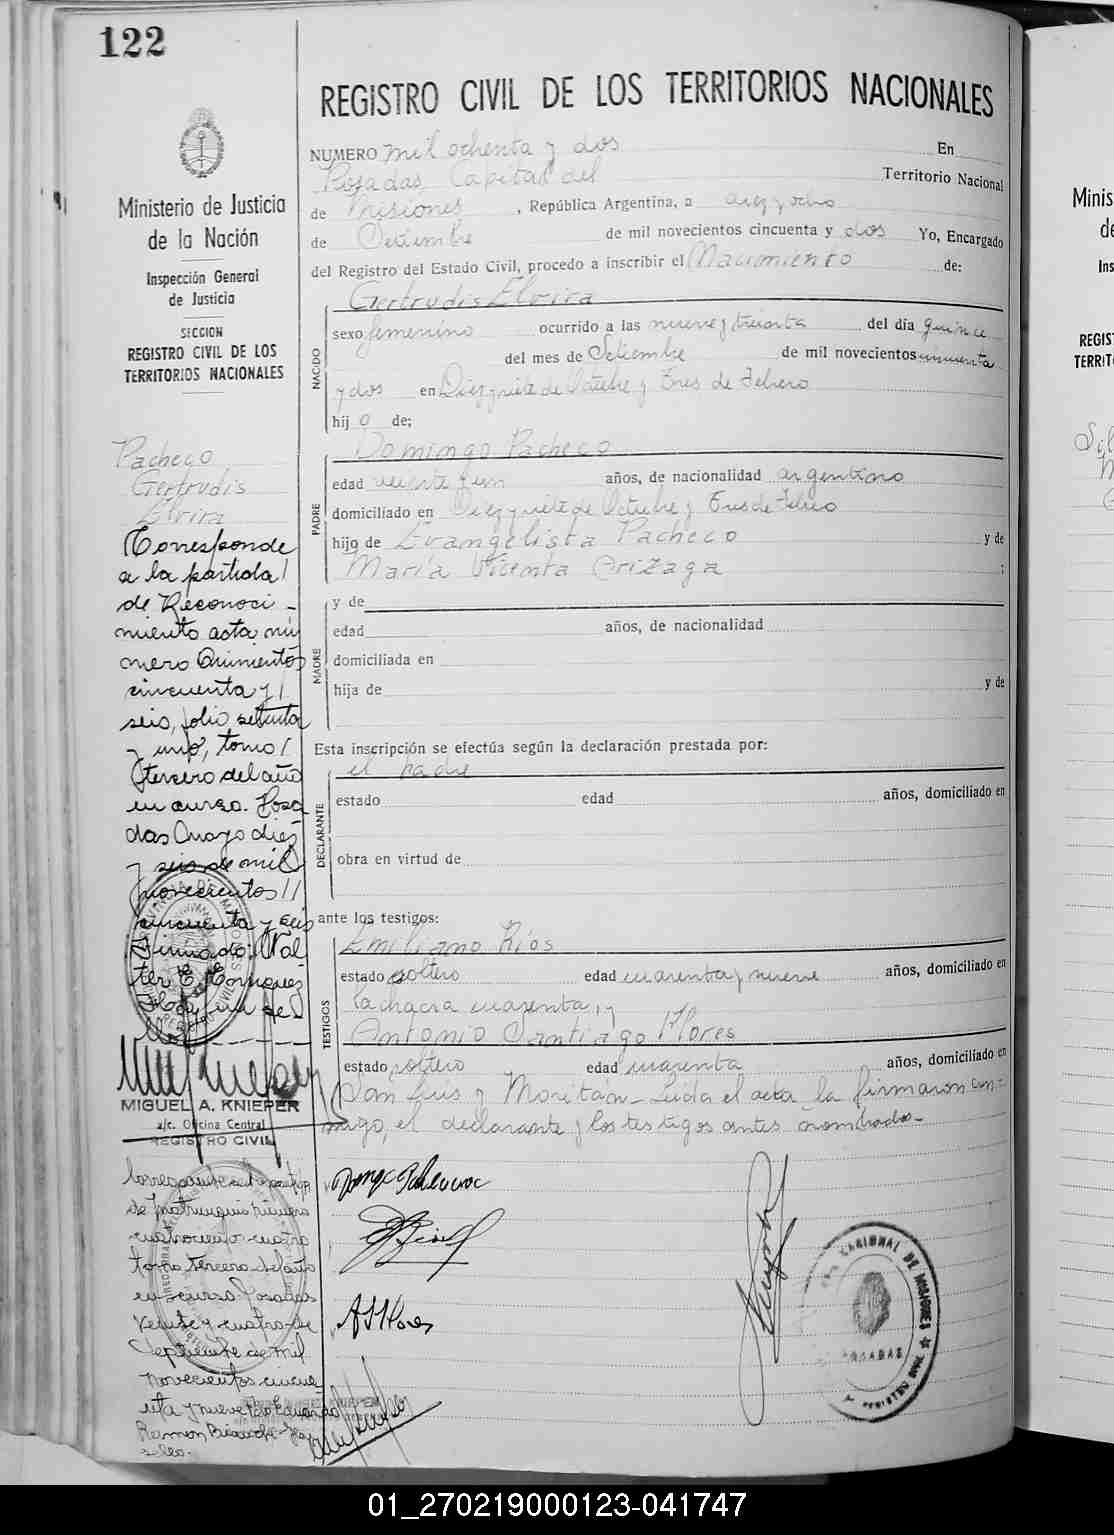 122
REGISTRO CIVIL DE LOS TERRITORIOS NACIONALES
Ministerio de Justicia
de la Nación
Inspección General
de Justicia
SECCION
REGISTRO CIVIL DE LOS
TERRITORIOS NACIONALES
NUMERO mil ochenta y dos En
Posadas, Capital del Territorio Nacional
de Misiones, República Argentina, a diez y ocho
de Setiembre de mil novecientos cincuenta y dos Yo, Encargado
del Registro del Estado Civil, procedo a inscribir el Nacimiento de:
NACIDO
Gertrudis Elvira
sexo femenino ocurrido a las nueve y treinta del día quince
del mes de Setiembre de mil novecientos cincuenta
y dos en Diez y siete de Octubre y Tres de Febrero
hij o de;
PADRE
Domingo Pacheco
edad veinte y un años, de nacionalidad argentino
domiciliado en Diez y siete de Octubre y Tres de Febrero
hijo de Evangelista Pacheco y de
María Vicenta Orizaga ;
MADRE
y de
edad años, de nacionalidad
domiciliada en
hija de y de
Esta inscripción se efectúa según la declaración prestada por:
DECLARANTE
el padre
estado edad años, domiciliado en
obra en virtud de
ante los testigos:
TESTIGOS
Emiliano Ríos
estado soltero edad cuarenta y nueve años, domiciliado en
la chacra cuarenta, y
Antonio Santiago Flores
estado soltero edad cuarenta años, domiciliado en
San Luis y Moritán - Leída el acta la firmaron con-
migo, el declarante y los testigos antes nombrados -
Pacheco
Gertrudis
Elvira
Corresponde
a la partida
de Reconoci-
miento acta nú
mero Quinientos
cincuenta y
seis, folio setenta
y uno, tomo
tercero del año
en curso. Posa
das Mayo diez
y seis de mil
novecientos
cincuenta y seis
Firmado: Wal
ter E.
Hay un se-
llo
MIGUEL A. KNIEPER
a/c. Oficina Central
REGISTRO CIVIL
de Matrimonio número
cuatrocientos cuatro
tomo tercero del año
en curso. Posadas
veinte y cuatro de
Septiembre de mil
novecientos cincue
nta y nueve Eduardo
Ramon Hay
sello.
A S Flores
NACIONAL DE MISIONES
POSADAS
01_270219000123-041747